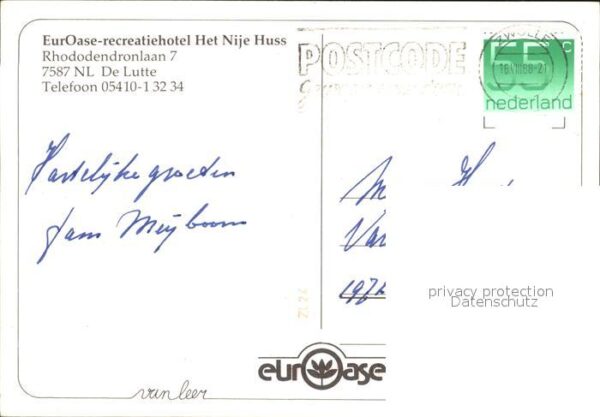 EurOase-recreatiehotel Het Nije Huss
Rhododendronlaan 7
7587 NL De Lutte
Telefoon 05410-1 32 34
POSTCODE
ZWOLLE
55 c
nederland
Hartelijke groeten
fam Meijboom
M H
Va
197
privacy protection
Datenschutz
eurOase
van leer